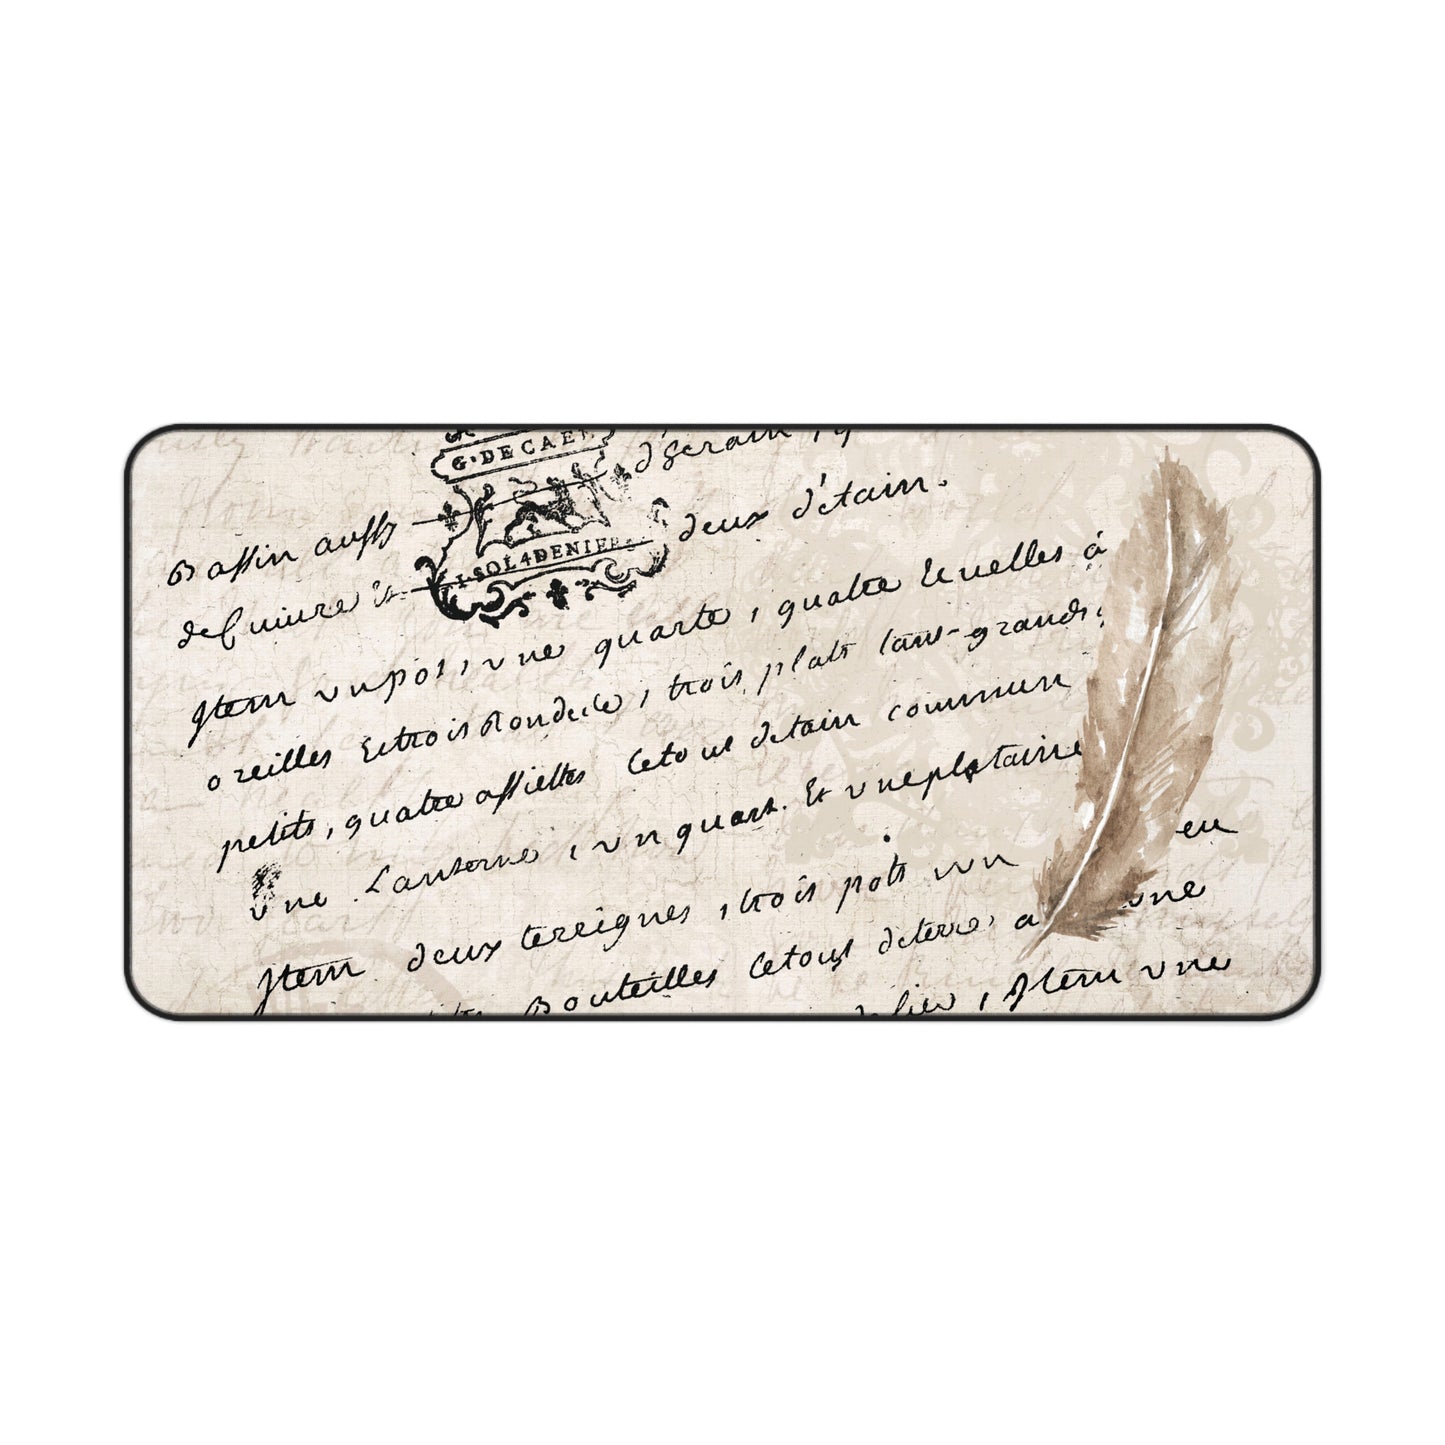 G. DE CAEN
Bassin aussy d'Serain, q
1 SOL 4 DENIERS
de Cuiure Et deux d'étain.
Jtem vn pot, vne quarte, quatre Ecuelles à
oreilles Et trois Rondelle, trois plats tant grands,
petits, quatre assiettes Le tout détain commun
Vne Lanterne, vn quart. Et vne plataine
Jtem deux terrignes, trois pots vn eu
Bouteilles Le tout de terre, a vne
, Jtem vne